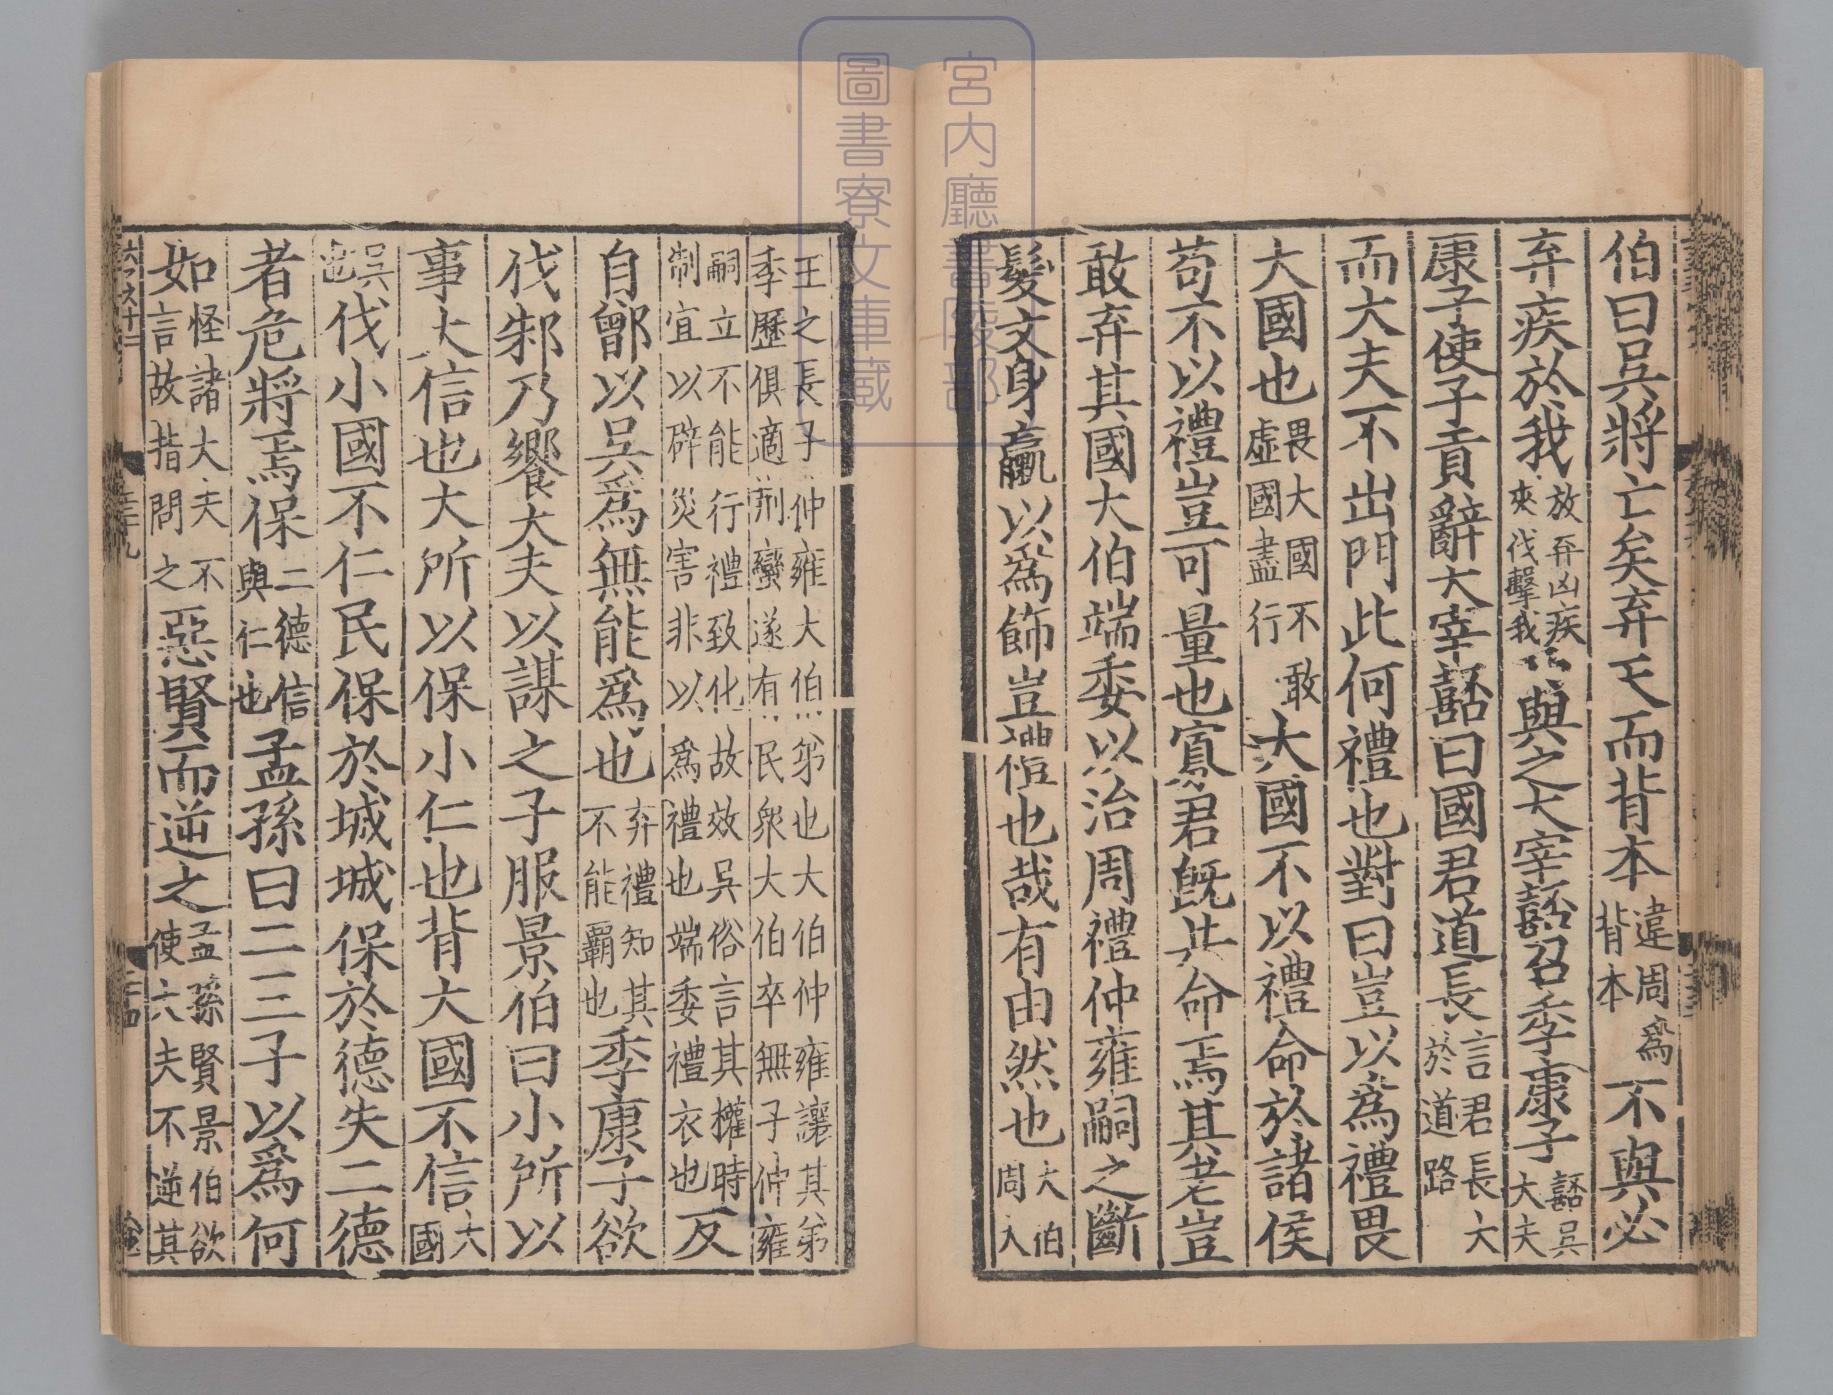 伯曰吳將亡矣弃天而背本違周爲背本不與必
弃疾於我放弃凶疾來伐擊我乃與之大宰嚭召季康子嚭吳大夫
康子使子貢辭大宰嚭曰國君道長言君長大於道路
而大夫不出門此何禮也對曰豈以爲禮畏
大國也畏大國不敢虛國盡行大國不以禮命於諸侯
苟不以禮豈可量也寡君既共命焉其老豈
敢弃其國大伯端委以治周禮仲雍嗣之斷
髮文身臝以爲飾豈禮也哉有由然也大伯周大
王之長子仲雍大伯弟也大伯仲雍讓其弟
季歷俱適荆蠻遂有民衆大伯卒無子仲雍
嗣立不能行禮致化故效吳俗言其權時
制宜以辟災害非以爲禮也端委禮衣也反
自鄫以吳爲無能爲也弃禮知其不能霸也季康子欲
伐邾乃饗大夫以謀之子服景伯曰小所以
事大信也大所以保小仁也背大國不信大國
吳也伐小國不仁民保於城城保於德失二德
者危將焉保二德信與仁也孟孫曰二三子以爲何
如怪諸大夫不言故指問之惡賢而逆之孟孫賢景伯欲使大夫不逆其
宮内廳書陵部
圖書寮文庫藏